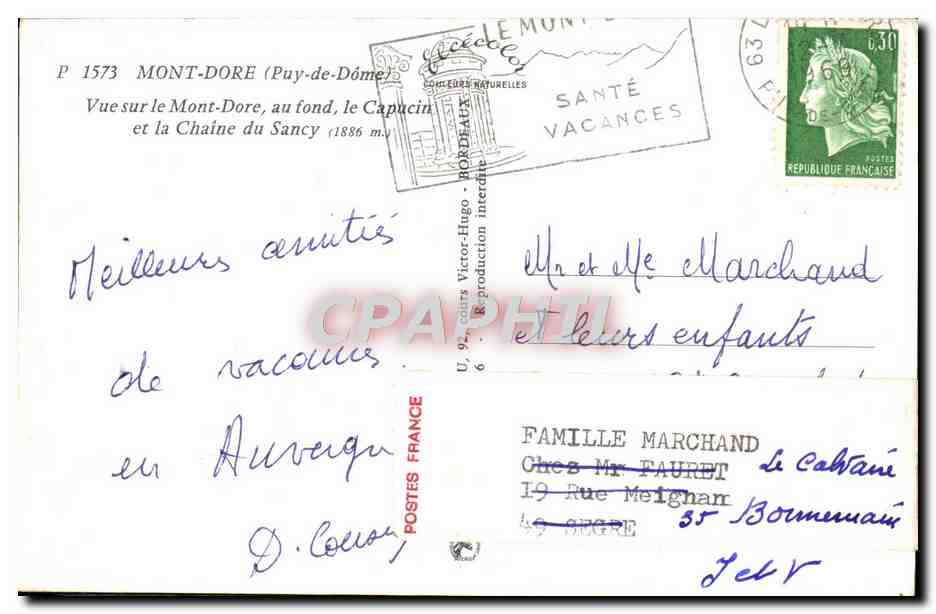 P 1573 MONT-DORE (Puy-de-Dôme)
Vue sur le Mont-Dore, au fond, le Capucin
et la Chaîne du Sancy (1886 m.)
LE MONT
SANTÉ
VACANCES
COULEURS NATURELLES
63
0,30
POSTES
REPUBLIQUE FRANÇAISE
U, 92, cours Victor-Hugo - BORDEAUX
6 - Reproduction interdite
Meilleures amitiés
de vacances
en Auvergne
Mr et Me Marchand
et leurs enfants
CPAPHTI
POSTES FRANCE
FAMILLE MARCHAND
Chez Mr FAURET Le Calvaire
19 Rue Meignan
49 SEGRE 35 Bonnemain
I et V